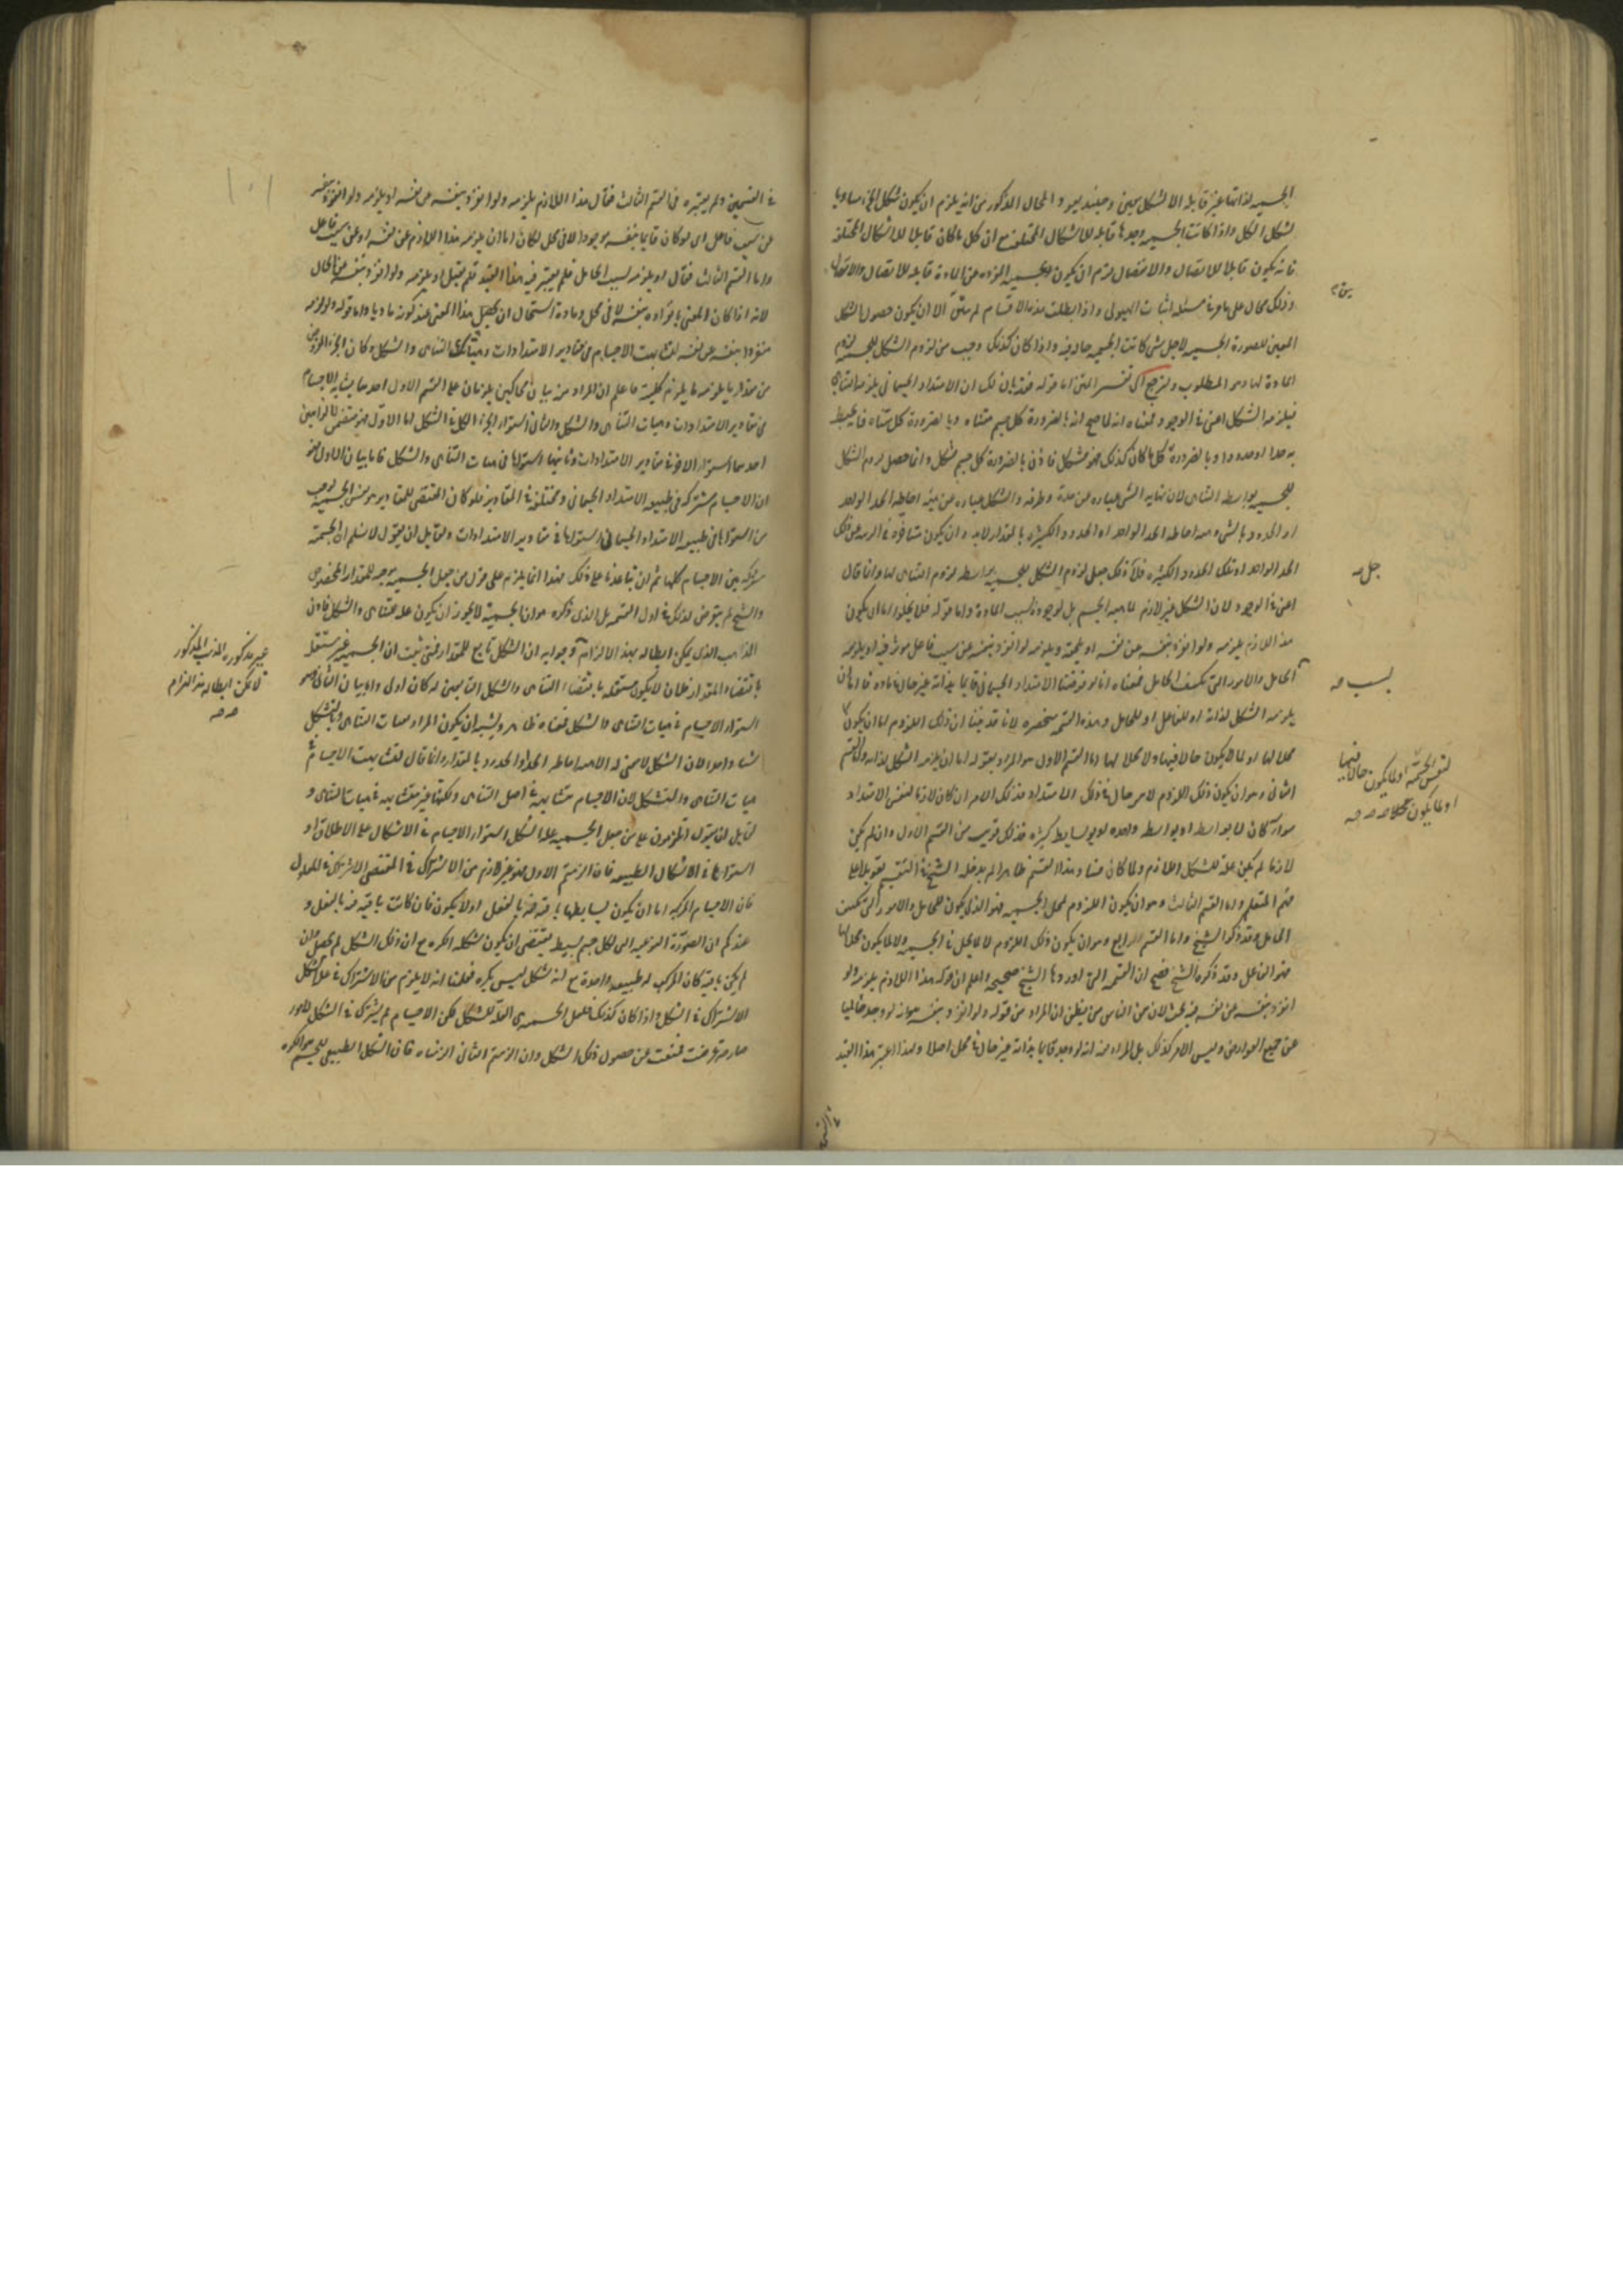 الجسمية لذاتها غير قابلة الا لشكل معين وحينئذ يعود المحال المذكور من انه يلزم ان يكون شكل الجزء مساويا
لشكل الكل واذا كانت الجسمية وحدها قابلة للاشكال المختلفة مع ان كل ما كان قابلا للاشكال المختلفة
فانه يكون قابلا للاتصال والانفصال لزم ان يكون الجسمية المفردة عن المادة قابلة للاتصال والانفصال
وذلك محال على ما مر في مسئلة اثبات الهيولى واذا بطلت هذه الاقسام لم يبق الا ان يكون حصول الشكل
المعين للصورة الجسمية لاجل شئ كانت الجسمية حالة فيه واذا كان كذلك وجب من لزوم الشكل للجسمية لزوم
المادة لها وهو المطلوب ولنرجع الى تفسير المتن اما قوله فقد بان لك ان الامتداد الجسماني يلزمه التناهي
فيلزمه الشكل اعني في الوجود فمعناه انه لما صح انه بالضرورة كل جسم متناه وبالضرورة كل متناه فانه يحيط
به حد او حدود وبالضرورة كل ما كان كذلك فهو مشكل فاذن بالضرورة كل جسم مشكل وانما حصل لزوم الشكل
للجسمية بواسطة التناهي لان نهاية الشئ عبارة عن حده وطرفه والشكل عبارة عن هيئة احاطة الحد الواحد
او الحدود بالشئ
الحد الواحد او تلك الحدود الكثيرة فلاجل ذلك جعل لزوم الشكل للجسمية بواسطة لزوم التناهي لها وانما قال
اعني في الوجود لان الشكل غير لازم لماهية الجسم بل لوجوده بسبب المادة واما قوله فلا يخلو اما ان يكون
هذا اللازم يلزمه ولو انفرد بنفسه عن نفسه او يلحقه ويلزمه لو انفرد بنفسه عن سبب فاعل موثر فيه او يلزمه
الحامل والامور التي تكتنف الحامل فمعناه انا لو فرضنا الامتداد الجسماني قائما بذاته غير حال في مادة فاما ان
يلزمه الشكل لذاته او للفاعل او للحامل وهذه القسمة منحصرة لانا قد بينا ان ذلك اللزوم اما ان يكون
محلا لها او لما لا يكون حالا فيها ولا محلا لها اما القسم الاول هو المراد بقوله اما ان يلزمه الشكل لذاته واما القسم
الثاني وهو ان يكون ذلك اللزوم لامر حال في ذلك الامتداد فذلك الامر ان كان لازما لنفس الامتداد
سواء كان لا بواسطة او بواسطة واحدة او بوسايط كثيرة فذلك قريب من القسم الاول وان لم يكن
لازما لم يكن علة للشكل اللازم ولما كان فساد هذا القسم ظاهرا لم يدخله الشيخ في التقسيم تعويلا على
فهم المتعلم واما القسم الثالث وهو ان يكون اللزوم لمحل الجسمية فهو الذي يكون للحامل والامور التي تكتنف
الحامل وقد ذكره الشيخ واما القسم الرابع وهو ان يكون ذلك اللزوم لما لا يحل في الجسمية ولا لما يكون محلا لها
فهو الفاعل وقد ذكره الشيخ فصح ان القسمة التي اوردها الشيخ صحيحة واعلم ان قوله هذا اللازم يلزمه ولو
انفرد بنفسه عن نفسه فيه بحث لان من الناس من يظن ان المراد من قوله ولو انفرد بنفسه هو انه لو وجد خاليا
عن جميع العوارض وليس الامر كذلك بل المراد منه انه لو وجد قائما بذاته غير حال في محل اصلا ولهذا اعتبر هذا القيد
لنفس الجسمية او لما يكون حالا فيها
او لما يكون محلا
جعل
بسبب
في القسمين ولم يعتبره في القسم الثالث فقال هذا اللازم يلزمه ولو انفرد بنفسه عن نفسه او يلزمه ولو انفرد بنفسه
عن سبب فاعل اي لو كان قائما بنفسه موجودا لا في محل لكان اما ان يلزمه هذا اللازم عن نفسه او عن سبب فاعل
واما القسم الثالث فقال او يلزمه بسبب الحامل فلم يعتبر فيه هذا القيد فلم يقل او يلزمه ولو انفرد بنفسه عن الحال
لانه اذا كان المعنى بانفراده بنفسه لا في محل ومادة استحال ان يحصل هذا المعنى عند كونه ماديا واما قوله ولو لزمه
منفردا بنفسه عن نفسه لتشابهت الاجسام في مقادير الامتدادات وهيئات التناهي والشكل وكان الجزء المفروض
من مقدار ما يلزمه ما يلزم كليته فاعلم ان المراد منه بيان محالين يلزمان على القسم الاول احدهما تشابه الاجسام
في مقادير الامتدادات وهيات التناهي والشكل والثاني استواء الجزء والكل في الشكل اما الاول فهو متضمن لامرين
احدهما استواء الاجسام في مقادير الامتدادات وثانيهما استوائها في هيات التناهي والشكل فاما بيان الاول فهو
ان الاجسام مشتركة في طبيعة الامتداد الجسماني ومختلفة في المقادير فلو كان المقتضي للمقادير هو نفس الجسمية لوجب
من استوائها في طبيعة الامتداد الجسماني استوائها في مقادير الامتدادات ولقايل ان يقول لا نسلم ان الجسمية
مشتركة بين الاجسام كلها ثم ان ساعدنا على ذلك فهذا انما يلزم على قول من جعل الجسمية موجبة للمقدار المخصوص
والشيخ لم يتعرض لذلك في اول القسمة بل الذي ذكره هو ان الجسمية لا يجوز ان يكون علة للتناهي والشكل فاذن
المذهب الذي يمكن ابطاله بهذا الالزام وجوابه ان الشكل تابع للمقدار فمتى ثبت ان الجسمية غير مستقلة
باقتضاء المقدار فلان لا يكون مستقلة باقتضاء التناهي والشكل التابعين له كان اولى واما بيان الثاني وهو
استواء الاجسام في هيات التناهي والشكل فمعناه ظاهر ويشبه ان يكون المراد بهيات التناهي وبالشكل
شيئا واحدا لان الشكل لا معنى له الا هيئة احاطة الحد او الحدود بالمقدار وانما قال لتشابهت الاجسام في
هيات التناهي والتشكل لان الاجسام متشابهة في اصل التناهي ولكنها غير متشابهة في هيات التناهي و
لقايل ان يقول الملزمون على من جعل الجسمية علة الشكل استواء الاجسام في الاشكال على الاطلاق او
استوائها في الاشكال الطبيعية فان الزمتم الاول فهو غير لازم من الاشتراك في المقتضي الاشتراك في المعلول
فان الاجسام المركبة اما ان يكون بسايطها باقية فيها بالفعل اولا يكون فان كانت باقية فيه بالفعل و
عندكم ان الصورة النوعية التي لكل جسم بسيط يقتضي ان يكون شكله الكرة مع ان ذلك الشكل لم يحصل وان
لم يكن باقية كان للمركب طبيعة واحدة مع انه شكل ليس بكرة فعلمنا انه لا يلزم من الاشتراك في علة الشكل
الاشتراك في الشكل واذا كان كذلك فلعل الجسمية هي العلة للشكل لكن الاجسام لم يشترك في الشكل لامور
صارفة عرضت فمنعت عن حصول ذلك الشكل وان الزمتم الثاني التزمناه فان الشكل الطبيعي للجسم هو الكرة
غير مذكور والمذهب المذكور
لا يمكن ابطاله بهذا الالزام